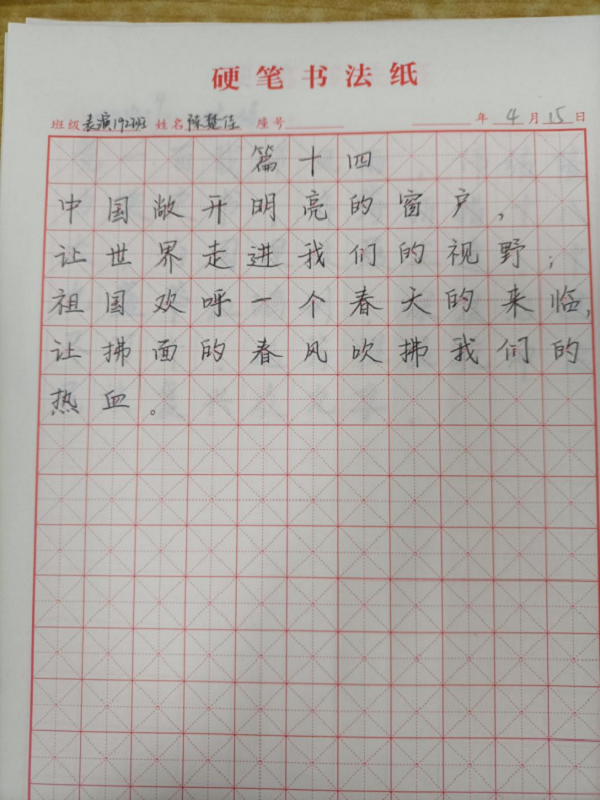 硬笔书法纸
班级 表演192班 姓名 陈楚佳 座号 年 4 月 15 日
篇十四
中国敞开明亮的窗户，
让世界走进我们的视野；
祖国欢呼一个春天的来临，
让拂面的春风吹拂我们的
热血。